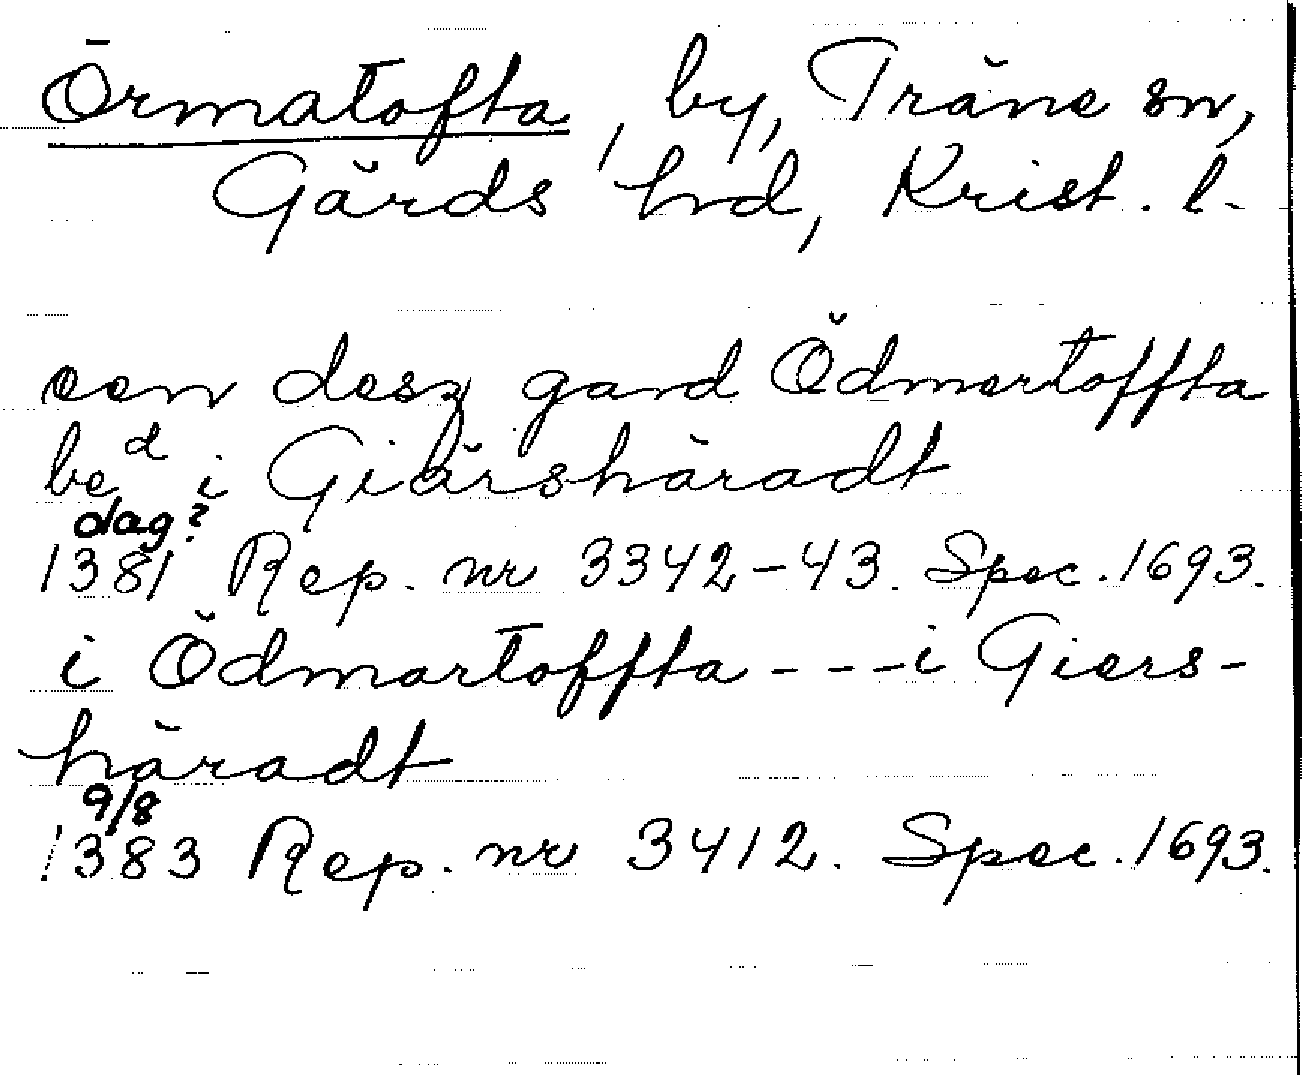 Örmatofta, by, Träne sn,
Gärds hrd, Krist. l.
een desz gard Ödmertoffta
beᵈ i Giärshäradt
dag?
1381 Rep. nr 3342-43. Spec. 1693.
i Ödmartoffta - - - i Giers-
häradt
9/8
1383 Rep. nr 3412. Spec. 1693.